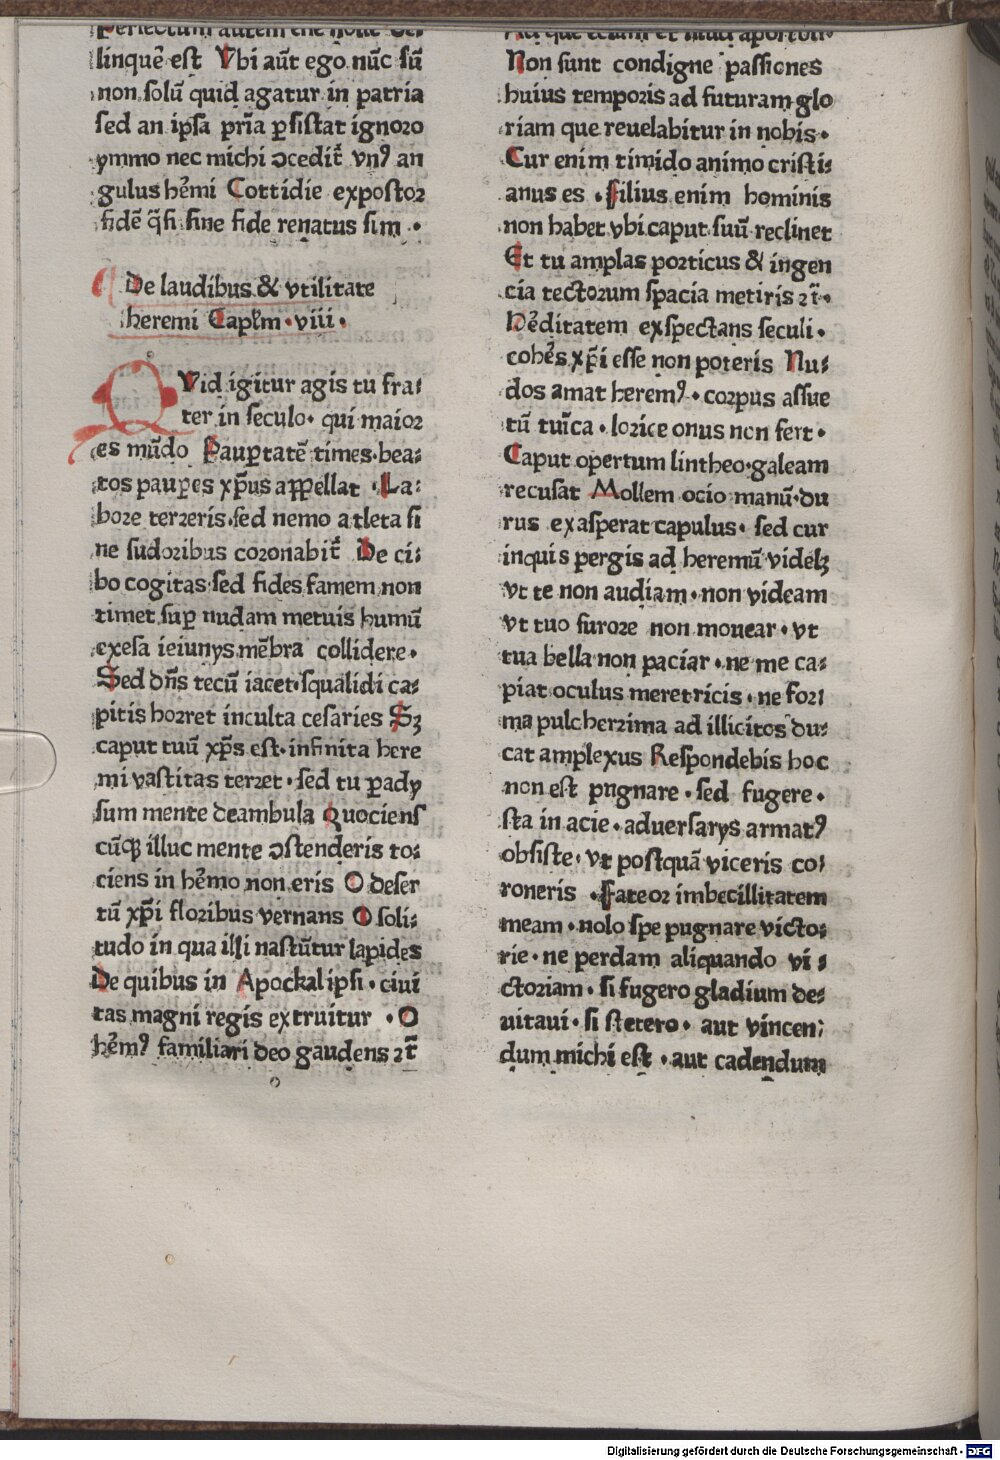 perfectum autem esse nolle de⸗
linquē est Vbi aūt ego nūc sū
non solū quid agatur in patria
sed an ipsa pr̄ia ꝑsistat ignoro
ymmo nec michi ꝯcedit̄ vnꝰ an
gulus hēmi Cottidie expostor
fidē q̄si sine fide renatus sim ·
De laudibus & vtilitate
heremi Capl̄m · viii ·
QVid igitur agis tu fra⸗
ter in seculo · qui maior
es mūdo Pauꝑtatē times · bea⸗
tos pauꝑes xp̄us aꝑꝑellat · La⸗
bore terreris · sed nemo atleta si
ne sudoribus coronabit̄ De ci⸗
bo cogitas · sed fides famem non
timet suꝑ nudam metuis humū
exesa ieiunys mēbra collidere ·
Sed dn̄s tecū iacet · squalidi ca⸗
pitis horret inculta cesaries Sꝫ
caput tuū xp̄s est · infinita here
mi vastitas terret · sed tu ꝑady
sum mente deambula Quociens
cūqꝫ illuc mente ꝯstenderis to⸗
ciens in hēmo non eris O deser
tū xp̄i floribus vernans O soli⸗
tudo in qua illi nascūtur lapides
De quibus in Apockalipsi · ciui
tas magni regis extruitur · O
hēmꝰ familiari deo gaudens ⁊t̄
Non sunt condigne passiones
huius temporis ad futuram glo
riam que reuelabitur in nobis ·
Cur enim timido animo cristi⸗
anus es · Filius enim hominis
non habet vbi caput suū reclinet
Et tu amplas porticus & ingen
cia tectorum spacia metiris ⁊t̄ ·
Hēditatem exspectans seculi ·
cohēs xp̄i esse non poteris Nu⸗
dos amat heremꝰ · corpus assue
tū tuīca · lorice onus non fert ·
Caput opertum lintheo · galeam
recusat Mollem ocio manū · du
rus exasperat capulus · sed cur
inquis pergis ad heremū videlꝫ
vt te non audiam · non videam
vt tuo furore non mouear · vt
tua bella non paciar · ne me ca⸗
piat oculus meretricis · ne for⸗
ma pulcherrima ad illicitos du⸗
cat amplexus Respondebis hoc
non est pugnare · sed fugere ·
sta in acie · aduersarys armatꝰ
obsiste · vt postquā viceris co⸗
roneris · Fateor imbecillitatem
meam · nolo spe pugnare victo⸗
rie · ne perdam aliquando vi⸗
ctoriam · si fugero gladium de⸗
uitaui · si stetero · aut vincen⸗
dum michi est · aut cadendum
Digitalisierung gefördert durch die Deutsche Forschungsgemeinschaft - DFG